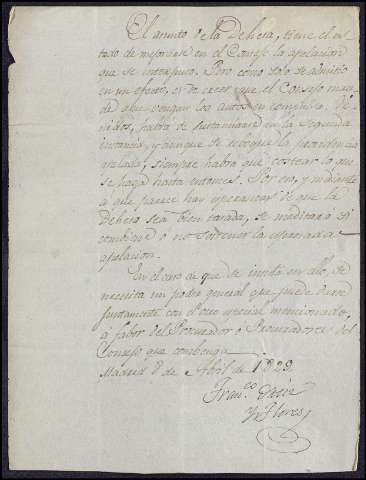 El asunto de la Dehesa, tiene el es-
tado de mejorarse en el Consejo la apelacion
que se interpuso. Pero como solo se admitio
en un efecto, es de creer que el Consejo man-
de que vengan los autos en compulsa. Ve-
nidos, habra de sustanciarse en la segunda
instancia, y aunque se revoque la providencia
apelada, siempre habra que costear lo que
se haga hasta entonces. Por eso, y mediante
a que parece hay esperanzas de que la
Dehesa sea bien tasada, se meditará si
combiene ó no sostener la espresada
apelacion.
En el caso de que se insista en ello, se
necesita un poder general que puede darse
juntamente con el otro especial mencionado,
á fabor del Procurador o Procuradores del
Consejo que combenga.
Madrid 8 de Abril de 1829.
Fran.co
y Flores